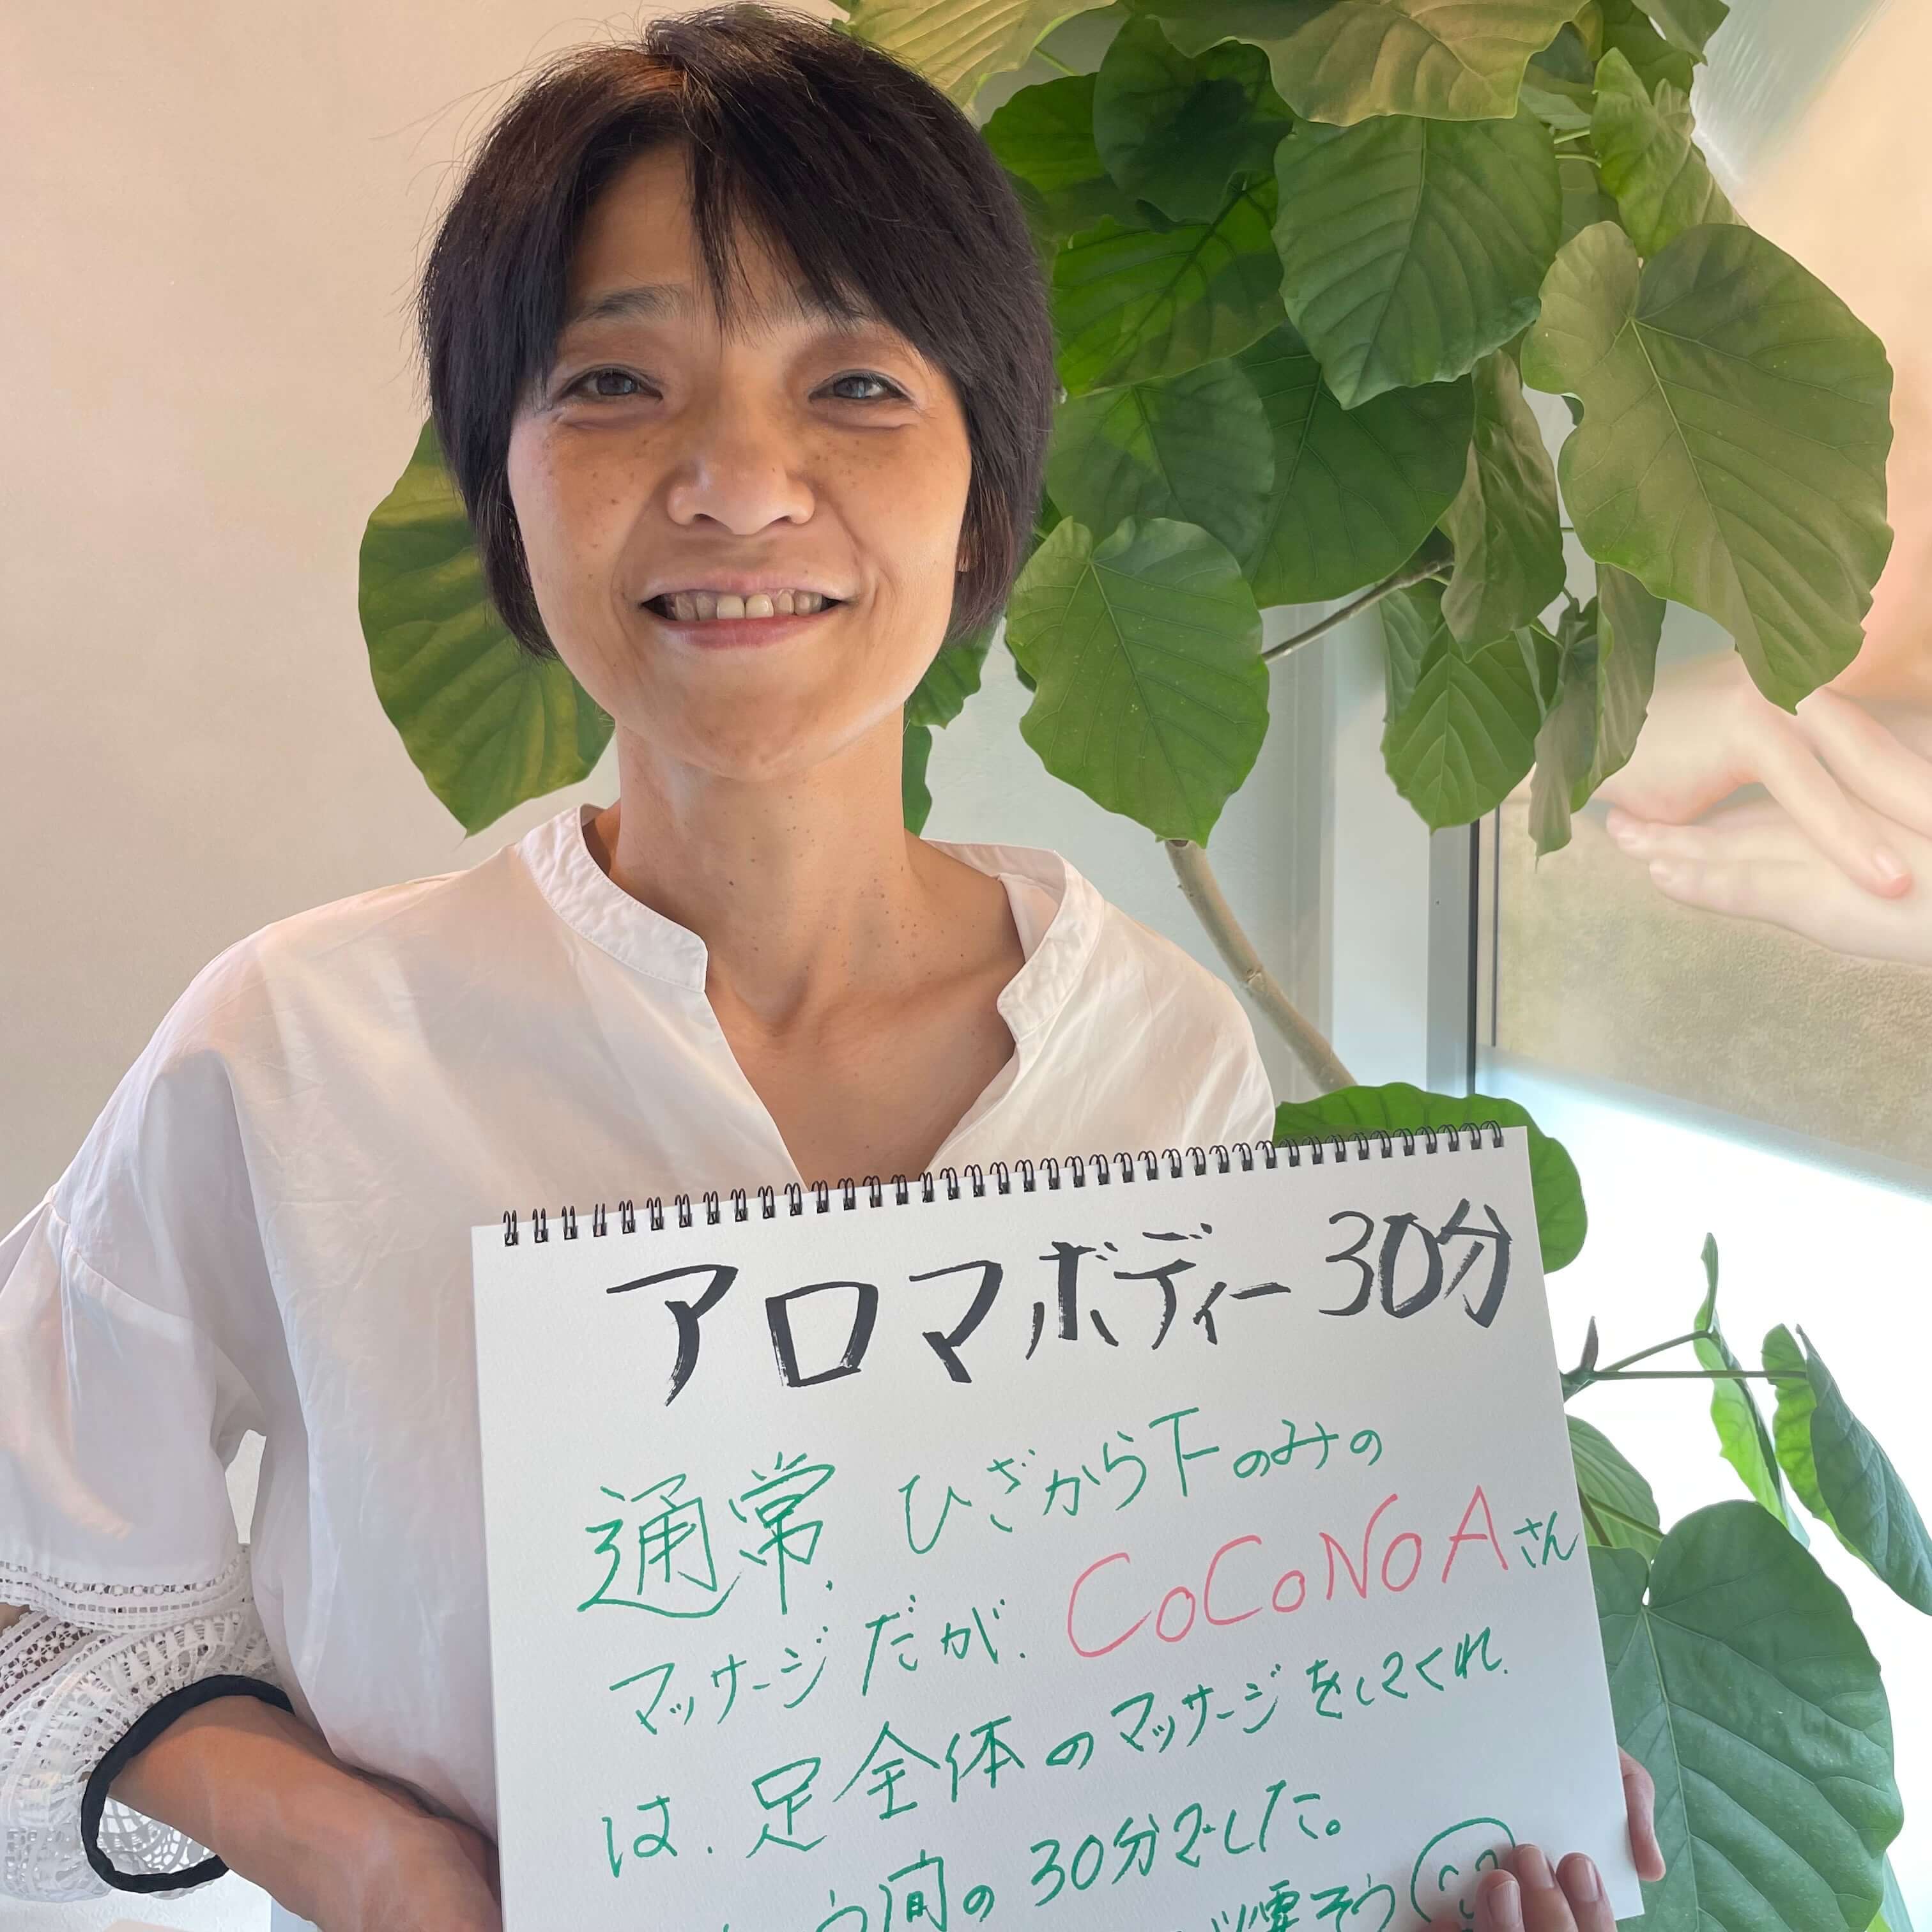 アロマボディー30分
通常、ひざから下のみの
マッサージだが、CoCoNoAさん
は、足全体のマッサージをしてくれ、
う間の30分でした。
そう